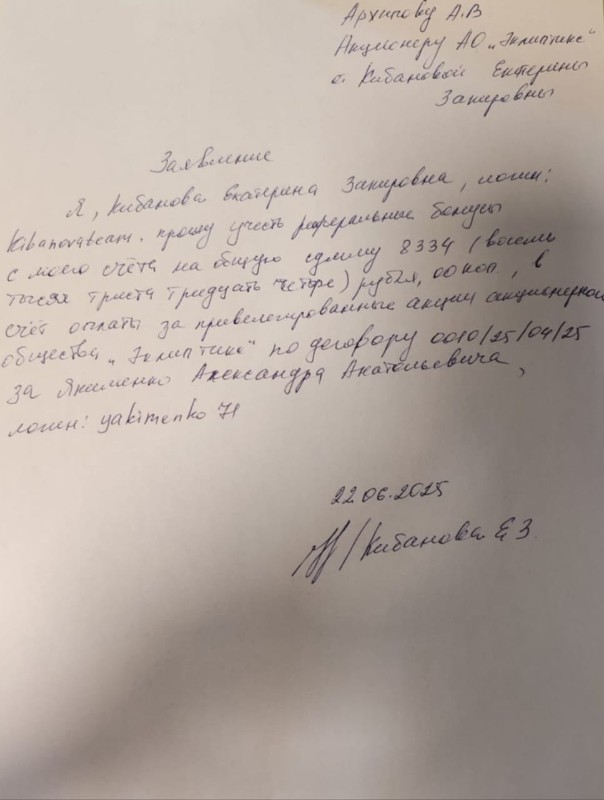 Архипову А.В
Акционеру АО „Эклиптика"
от Кибановой Екатерины
Закировны
Заявление
Я, Кибанова Екатерина Закировна, логин:
kibanovateam. прошу учесть реферальные бонусы
с моего счёта на общую сумму 8334 (восемь
тысяч триста тридцать четыре) рубля, 00 коп., в
счёт оплаты за привелегированные акции акционерного
общества „Эклиптика" по договору 0010/25/04/25
за Якименко Александра Анатольевича,
логин: yakimenko 71
22.06.2025
/Кибанова Е З